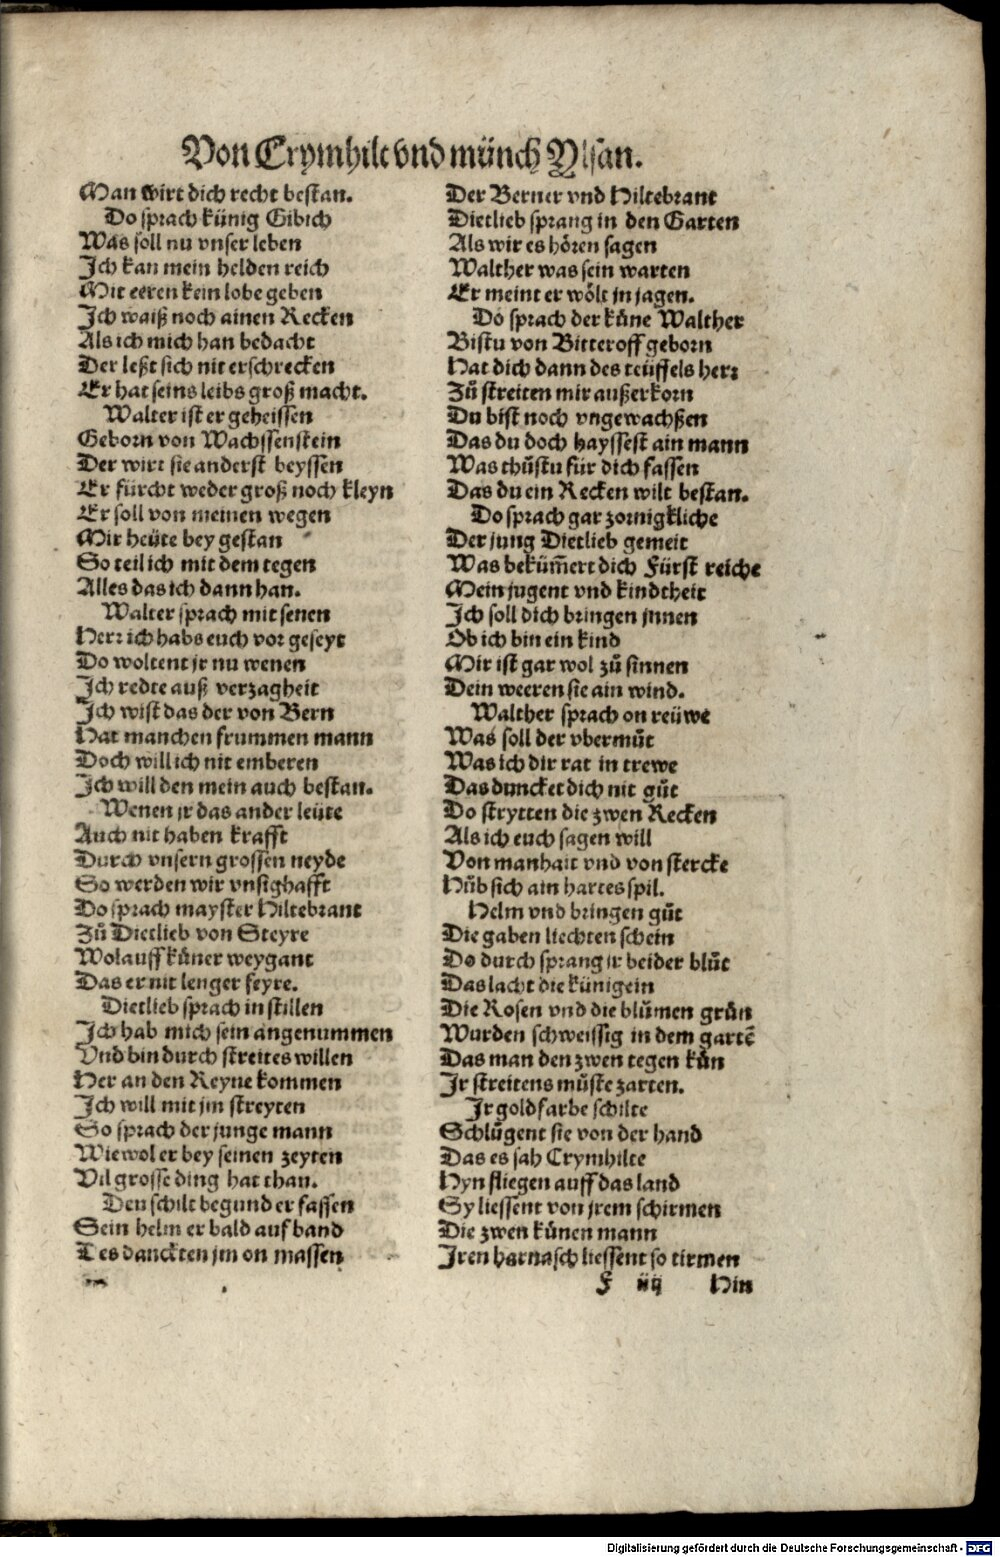 Von Crymhilt vnd münch Ylsan.
Man wirt dich recht bestan.
Do sprach künig Gibich
Was soll nu vnser leben
Ich kan mein helden reich
Mit eeren kein lobe geben
Ich waiß noch ainen Recken
Als ich mich han bedacht
Der leßt sich nit erschrecken
Er hat seins leibs groß macht.
Walter ist er geheissen
Geborn von Wachssenstein
Der wirt sie anderst beyssen
Er fürcht weder groß noch kleyn
Er soll von meinen wegen
Mir heüte bey gestan
So teil ich mit dem tegen
Alles das ich dann han.
Walter sprach mit senen
Herr ich habs euch vor geseyt
Do woltent jr nu wenen
Ich redte auß verzagheit
Ich wist das der von Bern
Hat manchen frummen mann
Doch will ich nit emberen
Ich will den mein auch bestan.
Wenen jr das ander leüte
Auch nit haben krafft
Durch vnsern grossen neyde
So werden wir vnsighafft
Do sprach mayster Hiltebrant
Zů Dietlieb von Steyre
Wolauff küner weygant
Das er nit lenger feyre.
Dietlieb sprach in stillen
Ich hab mich sein angenummen
Vnd bin durch streites willen
Her an den Reyne kommen
Ich will mit jm streyten
So sprach der junge mann
Wiewol er bey seinen zeyten
Vil grosse ding hat than.
Den schilt begund er fassen
Sein helm er bald auf band
Des danckten jm on massen
Der Berner vnd Hiltebrant
Dietlieb sprang in den Garten
Als wir es hören sagen
Walther was sein warten
Er meint er wölt jn jagen.
Do sprach der küne Walther
Bistu von Bitteroff geborn
Hat dich dann des teüffels herr
Zů streiten mir außerkorn
Du bist noch vngewachßen
Das du doch hayssest ain mann
Was thůstu für dich fassen
Das du ein Recken wilt bestan.
Do sprach gar zornigkliche
Der jung Dietlieb gemeit
Was bekům̃ert dich Fürst reiche
Mein jugent vnd kindtheit
Ich soll dich bringen jnnen
Ob ich bin ein kind
Mir ist gar wol zů sinnen
Dein weeren sie ain wind.
Walther sprach on reüwe
Was soll der vbermůt
Was ich dir rat in trewe
Das duncket dich nit gůt
Do strytten die zwen Recken
Als ich euch sagen will
Von manhait vnd von stercke
Hůb sich ain hartes spil.
Helm vnd bringen gůt
Die gaben liechten schein
Do durch sprang jr beider blůt
Das lacht die künigein
Die Rosen vnd die blůmen grün
Wurden schweissig in dem gartē
Das man den zwen tegen kün
Jr streitens můste zarten.
Jr goldfarbe schilte
Schlůgent sie von der hand
Das es sah Crymhilte
Hyn fliegen auff das land
Sy liessent von jrem schirmen
Die zwen künen mann
Jren harnasch liessent so tirmen
F iiij Hin